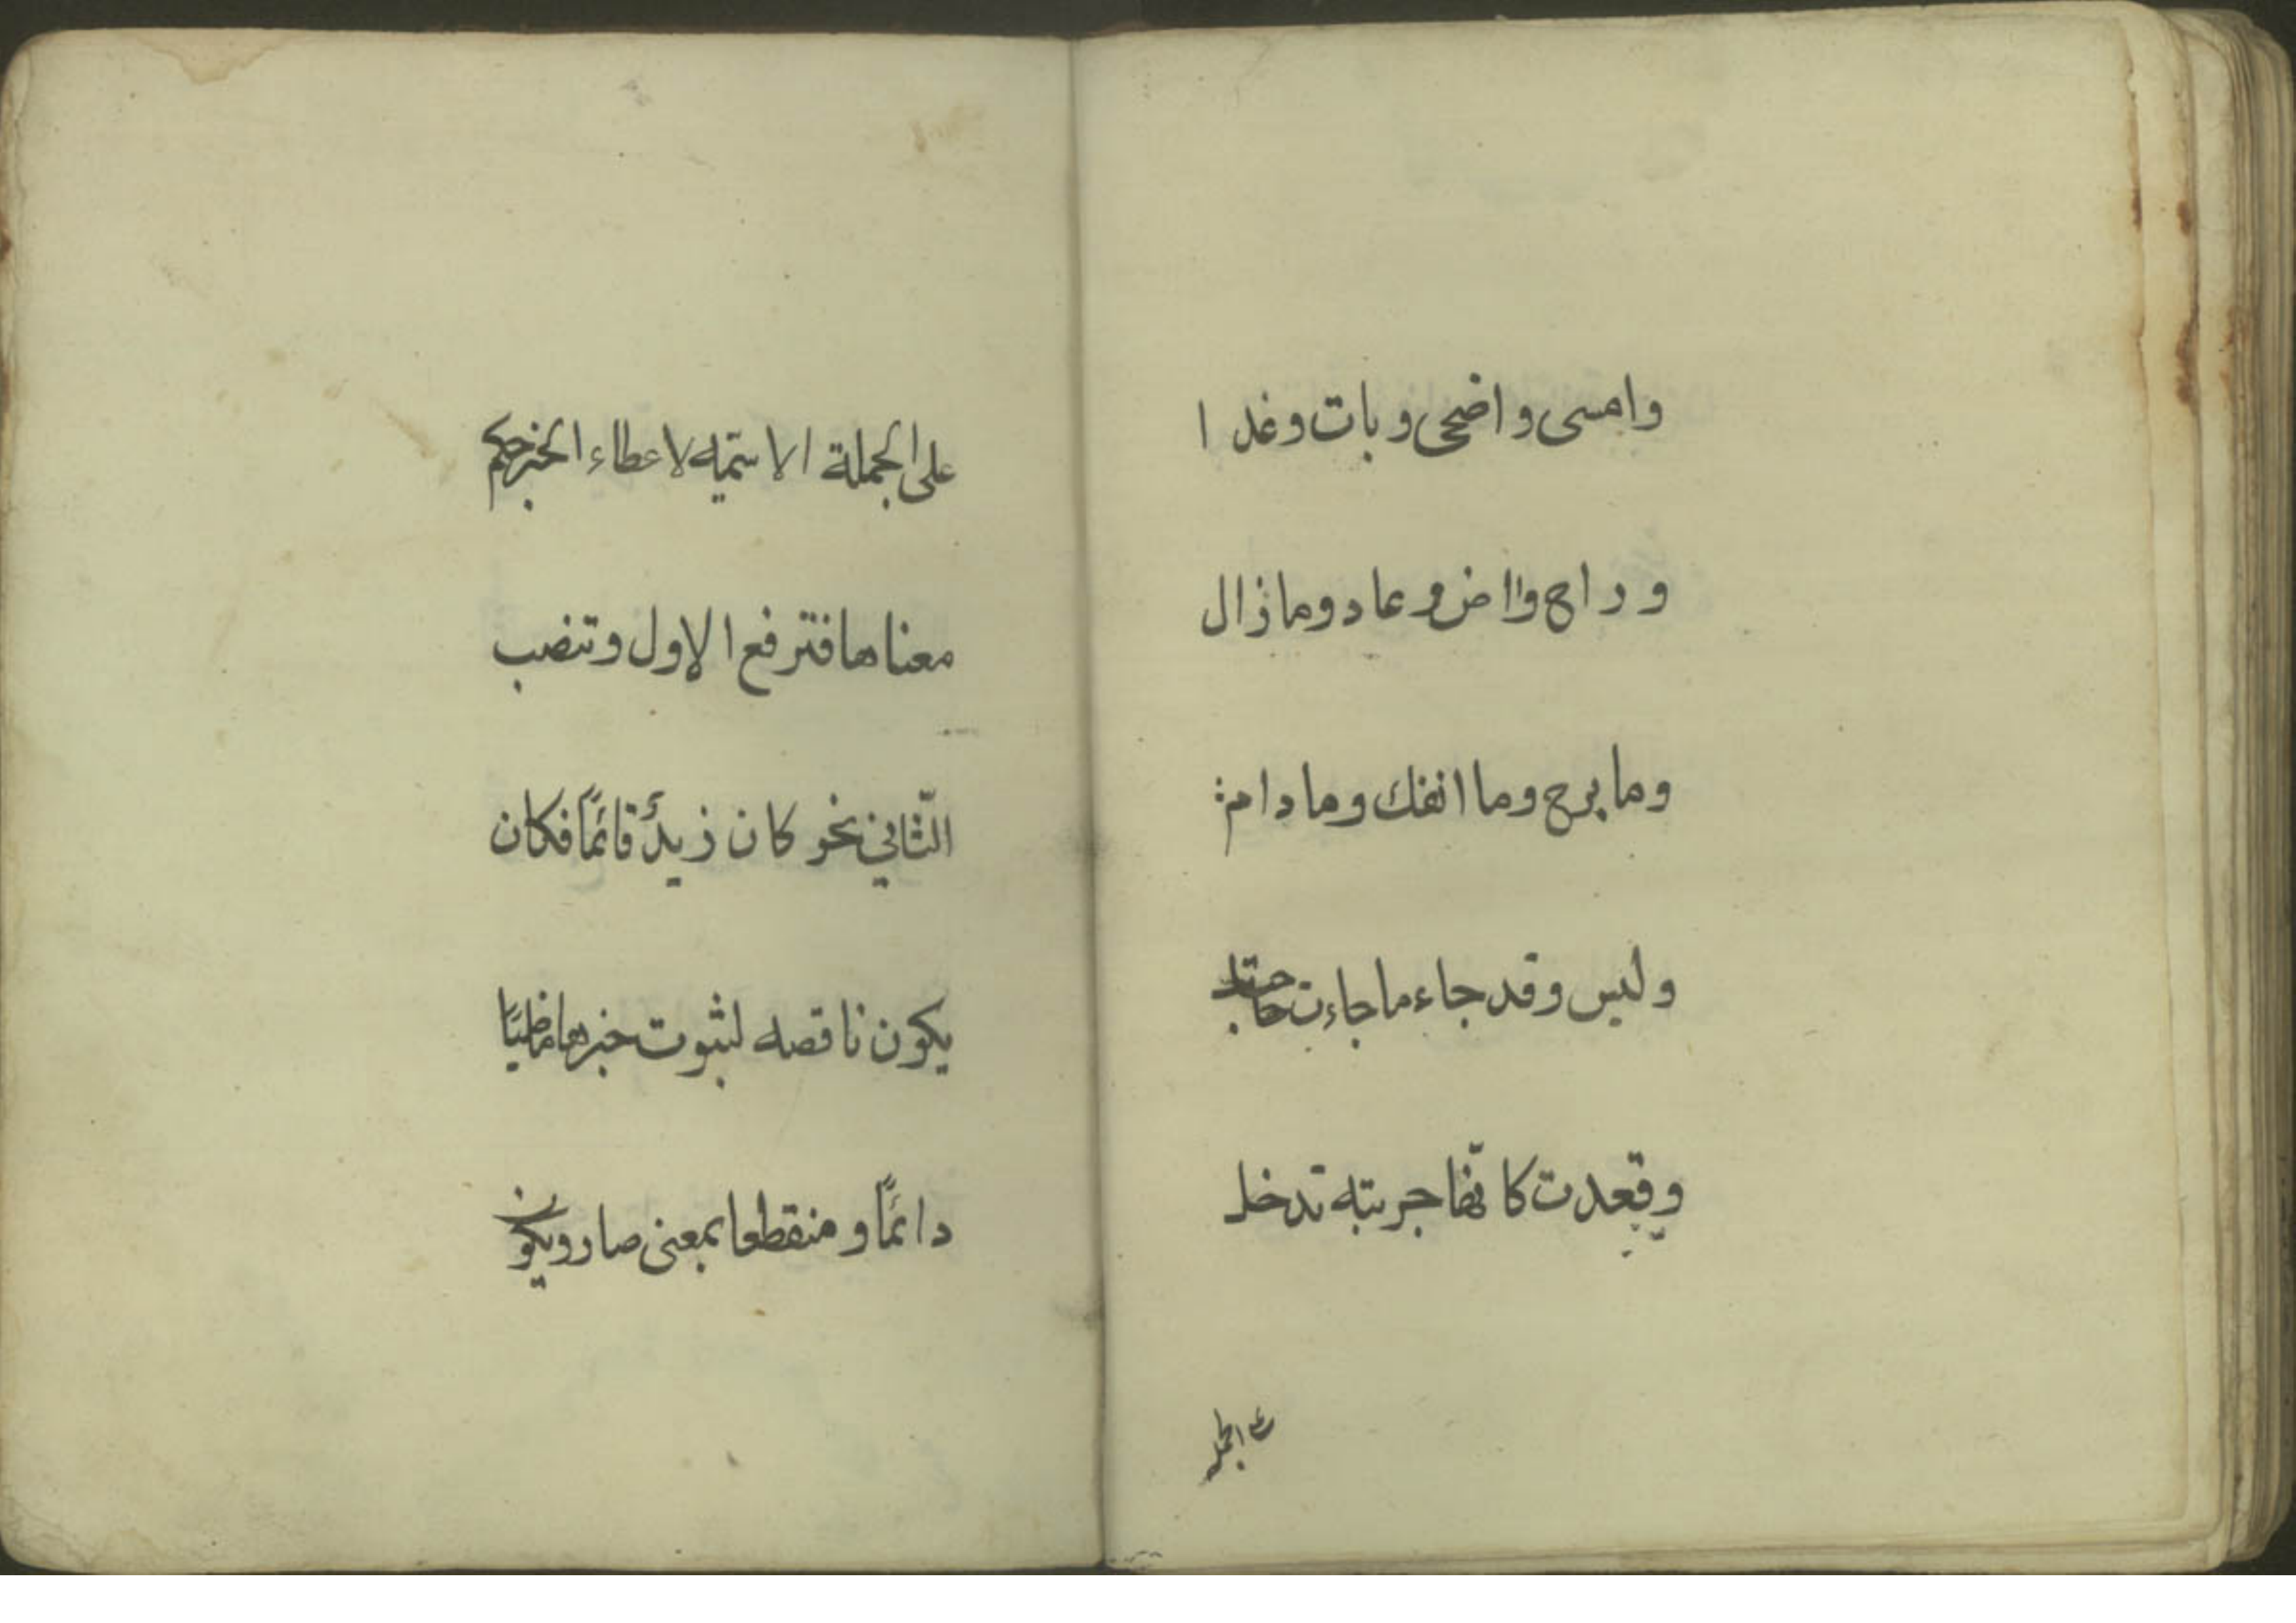 وامسى واضحى وبات وغدا
وراح واض وعاد وماذال
ومابرح وما انفك ومادام
وليس وقد جاء ماجاءت حاجتك
وقعدت كانّها حربته تدخل
على الجملة الاسميّه لاعطاء الخبر حكم
معناها فترفع الاول وتنضب
الثّاني نحو كان زيدٌ قائمًا فكان
يكون ناقصه لثبوت خبرها ماضيًا
دائمًا و منقطعا بمعنى صار ويكون